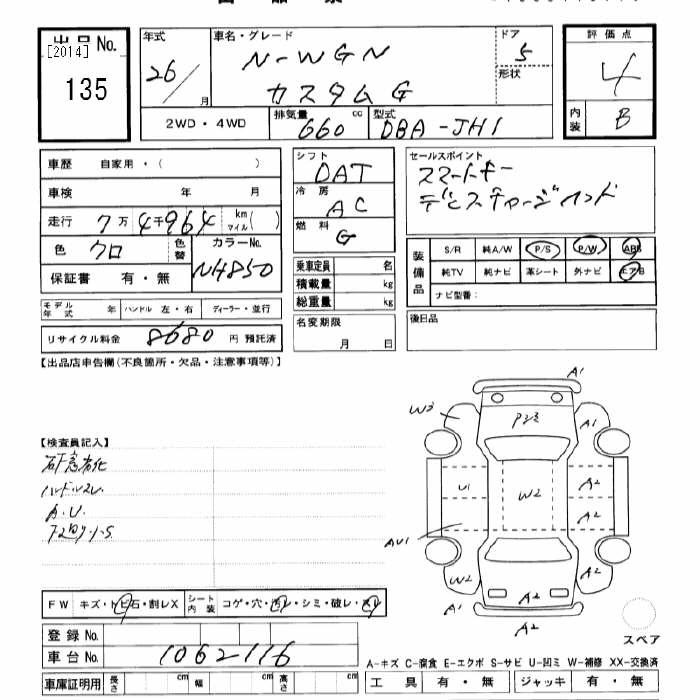 出品No.
[2014]
135
年式
26/月
車名・グレード
N-WGN
カスタムG
ドア
5
形状
評価点
4
内装
B
2WD・4WD
排気量
660 cc
型式
DBA-JH1
車歴 自家用・( )
車検 年 月
走行 7万4千964 km マイル( )
色 クロ 色替
カラーNo.
NH850
保証書 有・無
モデル年式 年 ハンドル 左・右 ディーラー・並行
リサイクル料金 8680 円 預託済
シフト
DAT
冷房
AC
燃料
G
乗車定員 名
積載量 kg
総重量 kg
名変期限
月 日
セールスポイント
スマートキー
装備品
S/R 純A/W P/S P/W ABS
純TV 純ナビ 革シート 外ナビ エアB
ナビ型番:
後日品
【出品店申告欄(不良箇所・欠品・注意事項等)】
【検査員記入】
ハンドルスレ
A.U.
A1
W3
P3ミ
A1
U1
W2
A2
A2
AU1
W2
A2
A1
A2
A2
スペア
FW キズ・トビ石・割レX シート内装 コゲ・穴・汚レ・シミ・破レ・スレ
登録No.
車台No. 1062116
車庫証明用 長さ cm 幅 cm 高さ cm
A-キズ C-腐食 E-エクボ S-サビ U-凹ミ W-補修 XX-交換済
工具 有・無 ジャッキ 有・無